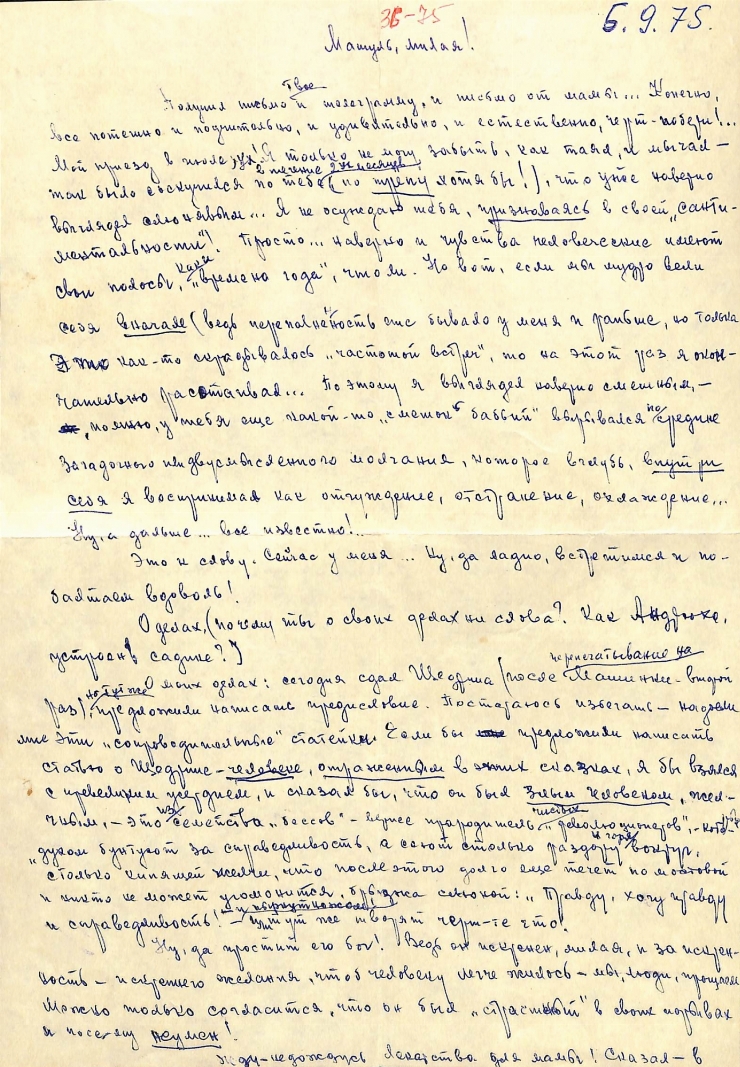 36-75
5.9.75.
Машуль, милая!
Твое
Получил письмо и телеграмму, и письмо от мамы... Конечно,
все потешно и поучительно, и удивительно, и естественно, черт-побери!...
Мой приезд в июле, ух! Я только не могу забыть, как таял, и мычал –
в течение 2х месяцев
так было соскучился по тебе (по трепу хотя бы!), что уже наверно
выглядел слюнявым... Я не осуждаю тебя, признаваясь в своей „санти-
ментальности"! Просто... наверно и чувства человеческие имеют
свои полосы, „времена года", что ли. Но вот, если мы мудро вели
себя вначале (ведь переполненность бывало у меня и раньше, но только
как-то скрадывалось „частотой встреч", то на этот раз я окон-
чательно растаял... Поэтому я выглядел наверно смешным, –
помню, у тебя еще какой-то „смешок бабий" вырывался посредине
загадочного недвусмысленного молчания, которое вглубь, внутри
себя я воспринимал как отчуждение, отстранение, охлаждение...
Ну, а дальше... все известно!..
Это к слову. Сейчас у меня... Ну, да ладно, встретимся и по-
болтаем вдоволь!
О делах, (почему ты о своих делах ни слова? Как Андрюха,
устроен в садике?)
перепечатывание на
О моих делах: сегодня сдал Щедрина (после Машинки – второй
но тут же
раз), предложили написать предисловие. Постараюсь избегать – надоели
мне эти „сопроводительные" статейки. Если бы предложили написать
статью о Щедрине – человеке, отраженным в этих сказках, я бы взялся
с превеликим усердием, и сказал бы, что он был злым человеком, жел-
чным, – это из семейства „бесов" – вернее прародитель
чистых
„революционеров", –
и горя
духом бунтуют за справедливость, а сеют столько раздору вокруг,
столько кипящей желчи, что после этого долго еще течет по мостовой
и никто не может угомонится, брызжа слюной: „Правду, хочу правду
и справедливость! – и тут же творят черт-те что.
Ну, да простит его бог! Ведь он искренен, милая, и за искрен-
ность – искреннего желания, чтоб человеку легче жилось – мы, люди, прощаем
Можно только согласится, что он был „страстный" в своих порывах
и посему неумен!
Жду-недождусь лекарства для мамы! Сказал – в